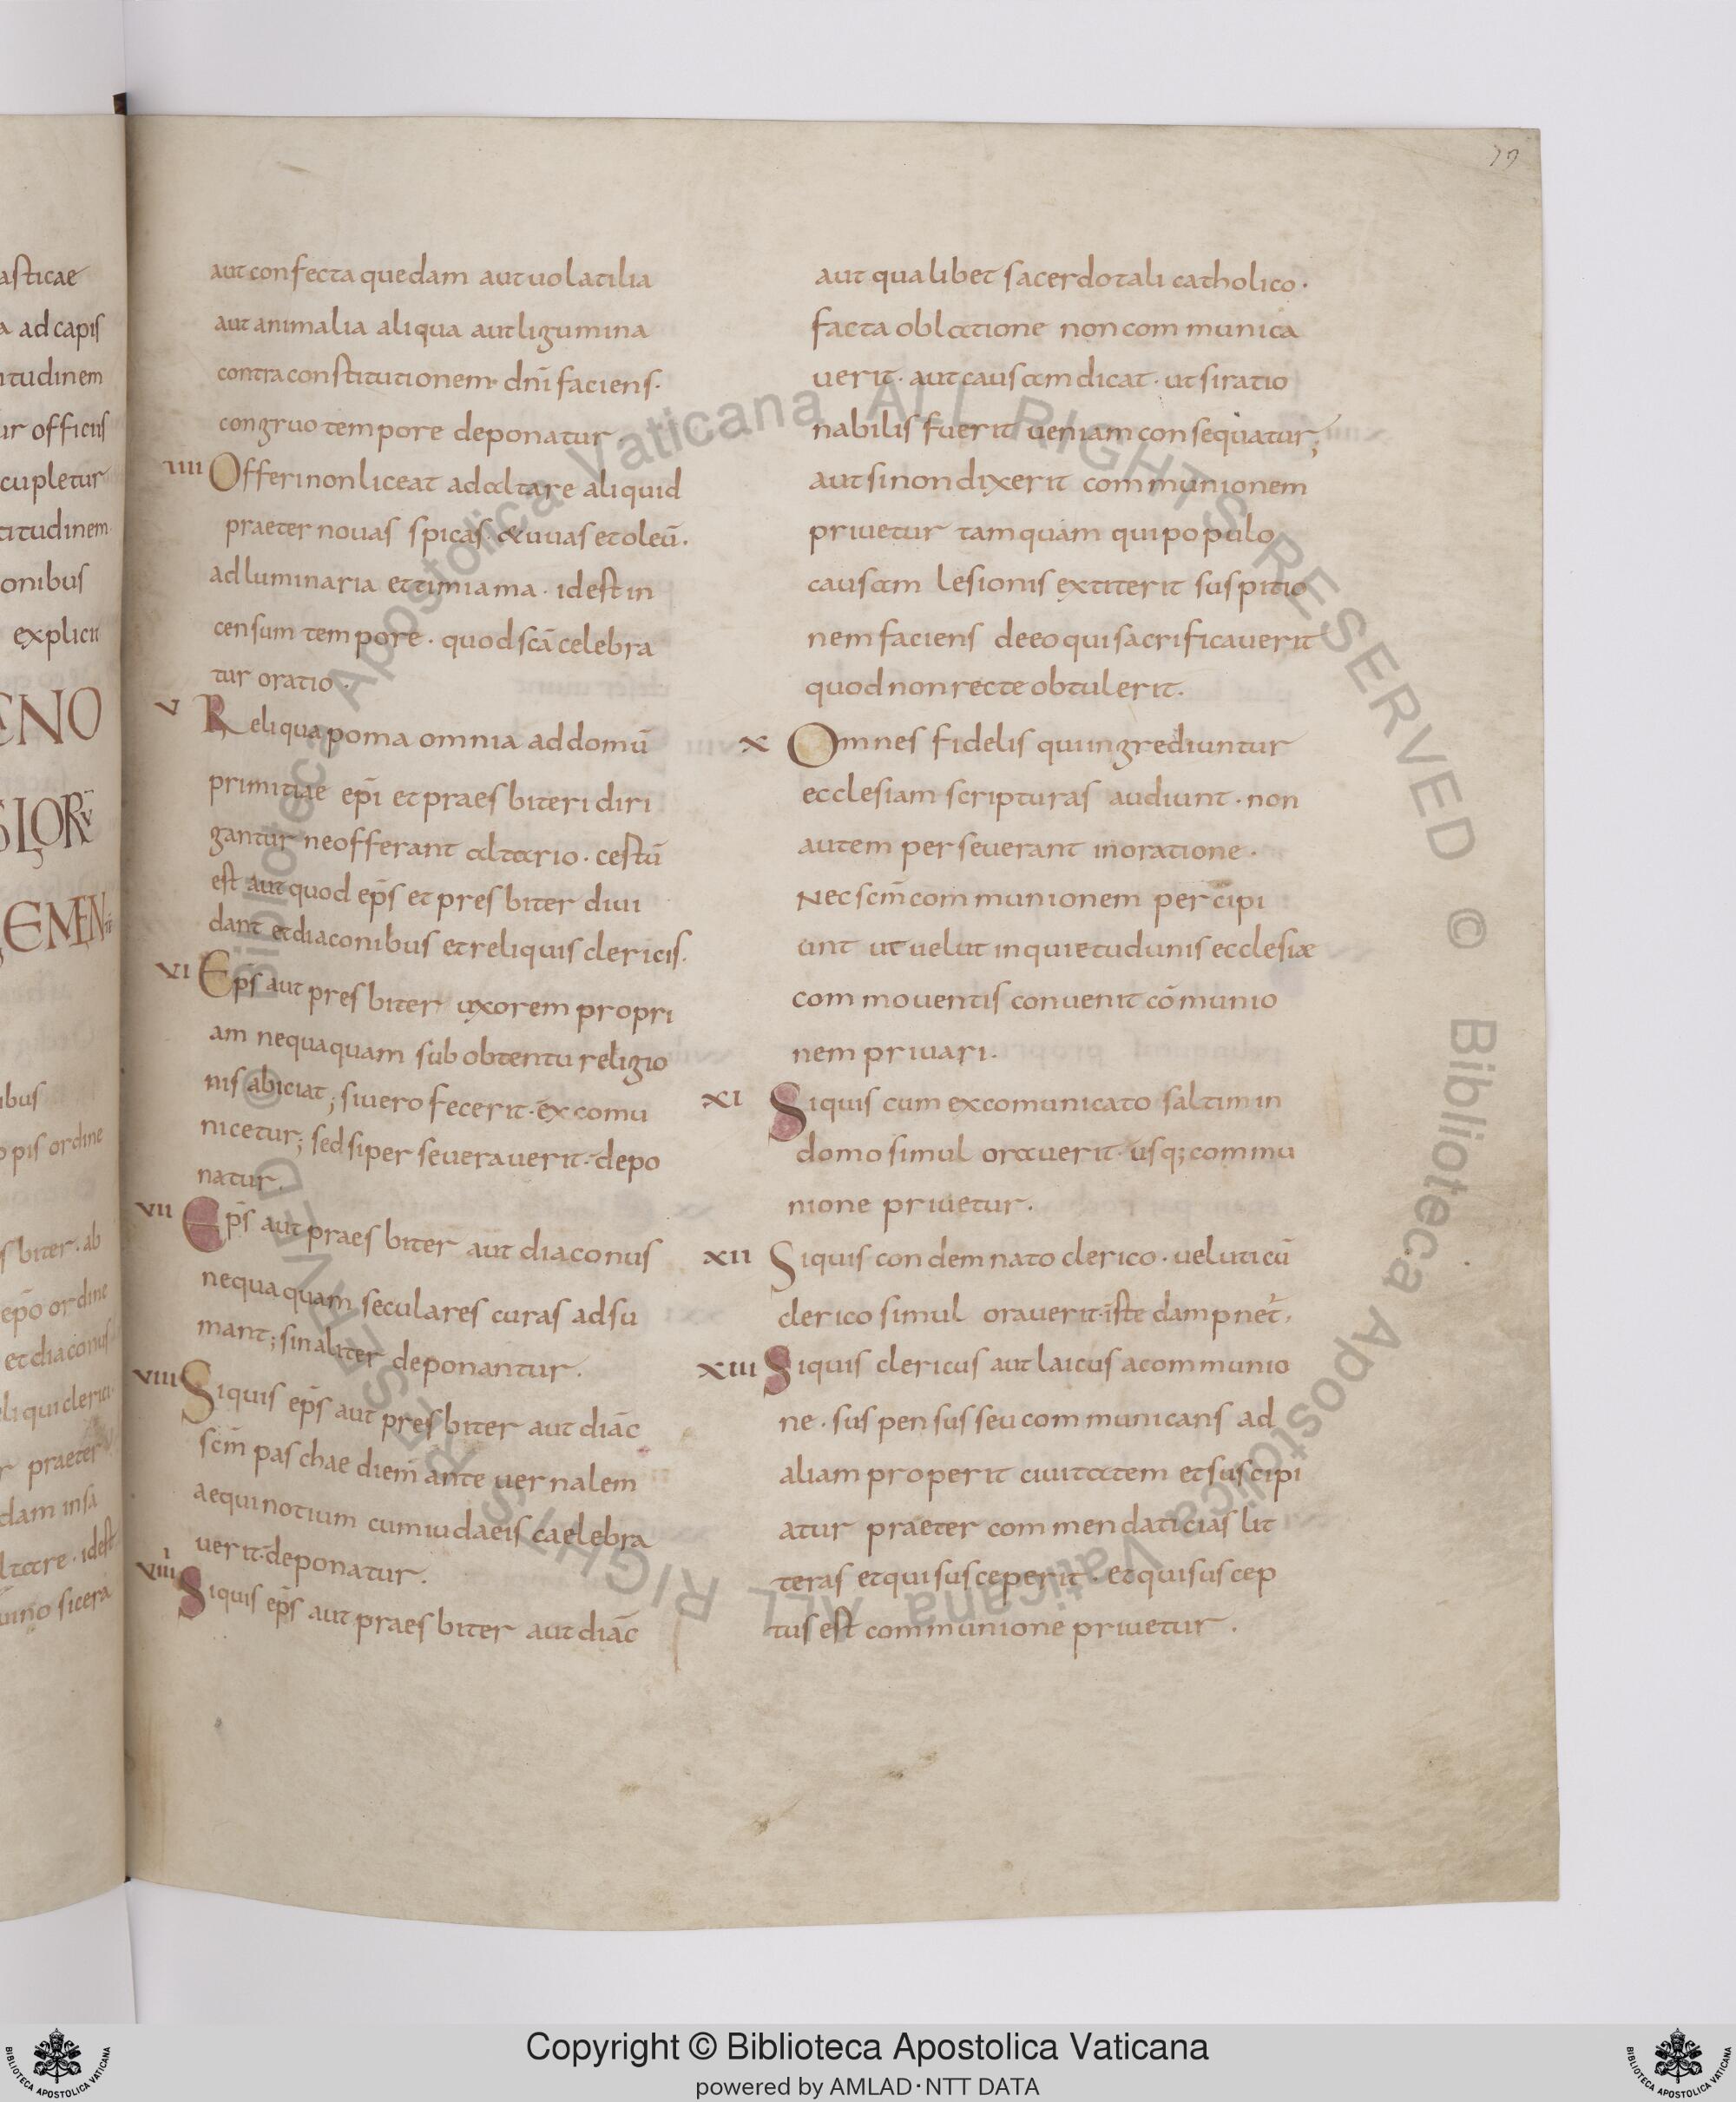 asticae
a ad capis
itudinem
ur officiis
cupletur
titudinem.
onibus
explicit
ENO
SIORV
GEMEN
ibus
opis ordine
sbiter. ab
ep̄o ordine
et diaconus
eli qui clerici.
r praeter
dam insa
ltare. idest
uino sicera
79
aut confecta quedam aut uolatilia
aut animalia aliqua aut ligumina
contra constitutionem. dnī faciens.
congruo tempore deponatur.
IIII Offeri non liceat ad altare aliquid
praeter nouas spicas. & uuas et oleū.
ad luminaria et timiama. idest in
censum tempore. quod scā celebra
tur oratio.
V Reliqua poma omnia ad domū
primitiae ep̄i et praesbiteri diri
gantur ne offerant altario. cestū
est aut quod ep̄s et presbiter diui
dant et diaconibus et reliquis clericis.
VI Ep̄s aut presbiter uxorem propri
am nequaquam sub obtentu religio
nis abiciat; si uero fecerit. excomu
nicetur; sed si perseuerauerit. depo
natur.
VII Ep̄s aut praesbiter aut diaconus
nequaquam seculares curas adsu
mant; sin aliter deponantur.
VIII Siquis ep̄s aut presbiter aut diāc
scm̄ paschae diem ante uernalem
aequinotium cum iudaeis caelebra
uerit. deponatur.
VIIII Siquis ep̄s aut praesbiter aut diāc
aut qualibet sacerdotali catholico.
facta oblatione non communica
uerit. aut causam dicat. ut si ratio
nabilis fuerit ueniam consequatur;
aut si non dixerit communionem
priuetur tamquam qui populo
causam lesionis extiterit suspitio
nem faciens de eo qui sacrificauerit
quod non recte obtulerit.
X Omnes fidelis qui ingrediuntur
ecclesiam scripturas audiunt. non
autem perseuerant in oratione.
Nec scm̄ communionem percipi
unt ut uelut inquietudunis ecclesiæ
commouentis conuenit cōmunio
nem priuari.
XI Siquis cum excomunicato saltim in
domo simul orauerit. usq; commu
nione priuetur.
XII Siquis condemnato clerico. ueluti cū
clerico simul orauerit. iste dampnet̄.
XIII Siquis clericus aut laicus a communio
ne. suspensus seu communicans ad
aliam properit ciuitatem et suscipi
atur praeter commendaticias lit
teras et qui susceperit. et qui suscep
tus est communione priuetur.
© Biblioteca Apostolica Vaticana ALL RIGHTS RESERVED
© Biblioteca Apostolica Vaticana ALL RIGHTS RESERVED
Copyright © Biblioteca Apostolica Vaticana
powered by AMLAD·NTT DATA
BIBLIOTECA APOSTOLICA VATICANA
BIBLIOTECA APOSTOLICA VATICANA